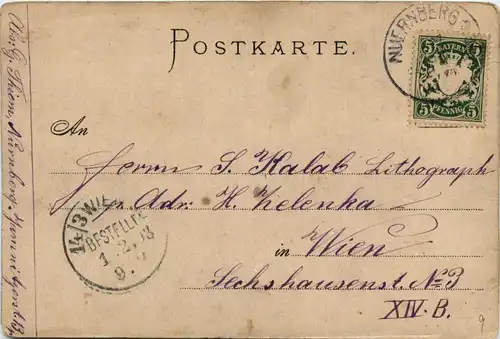 POSTKARTE.
NUERNBERG
5 5
BAYERN
PFENNIG
5 5
An
Herrn S. Kalab Lithograph
per Adr: H. Zelenka
in Wien
Sechshauserst. No 3
XIV. B.
14/3 WIE
BESTELLT
1.2.93
9.
Abs: G. Thiem, Nürnberg
9